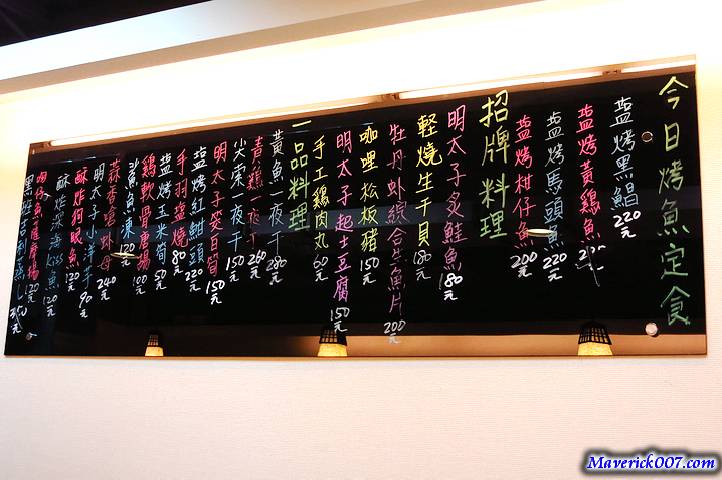 今日烤魚定食
盐烤黑鯧 220元
盐烤黃鷄魚
盐烤馬頭魚 220元
盐烤柑仔魚 200元
招牌料理
明太子炙鮭魚 180元
輕燒生干貝 180元
牡丹蝦綜合生魚片 200元
咖哩松板豬 150元
明太子起士豆腐 150元
手工鷄肉丸 60元
一品料理
黃魚一夜干 280元
青鷄一夜干 260元
尖梭一夜干 150元
明太子筊白筍 150元
盐烤紅魽頭 220元
手羽盐燒 80元
盐烤玉米筍 50元
鷄軟骨唐揚 100元
魚凍 120元
蒜香嗆蚵母 240元
明太子小洋芋 90元
酥炸狗眼魚 120元
酥炸深海kiss魚 120元
吻仔魚薩摩揚 120元
Maverick007.com